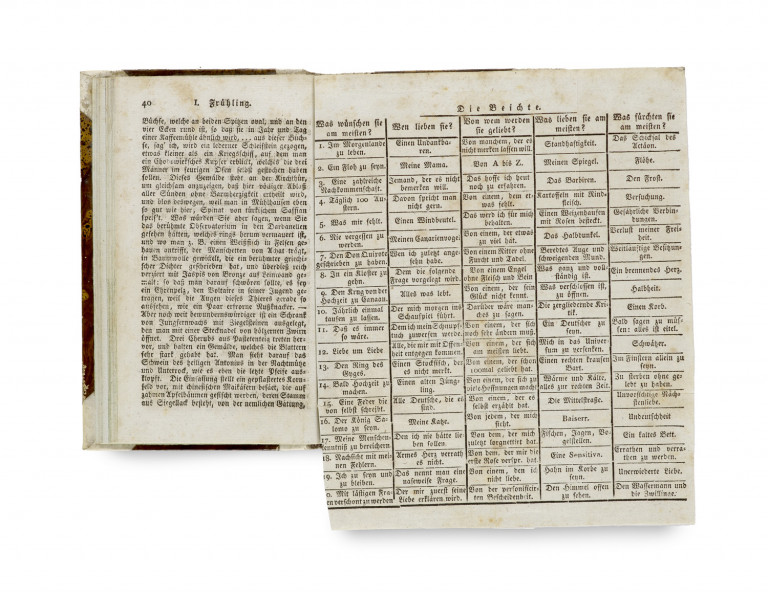 40 I. Frühling.
Büchse, welche an beiden Spitzen oval, und an den
vier Ecken rund ist, so daß sie in Jahr und Tag
einer Kaffemühle ähnlich wird, ... aus dieser Büch-
se, sag' ich, wird ein lederner Schleifstein gezogen,
etwas kleiner als ein Kriegsschiff, auf dem man
ein Kupfer erblikt, welches die drei
Männer im feurigen Ofen selbst gestochen haben
sollen. Dieses Gemälde steht an der Kirchthür,
um gleichsam anzuzeigen, daß hier völliger Ablaß
aller Stunden ohne Barmherzigkeit ertheilt wird,
und blos deswegen, weil man in Mühlhausen eben
so gut wie hier, Spinat von türkischem Saffian
speis't. Was würden Sie aber sagen, wenn Sie
das berühmte Observatorium in den Dardanellen
gesehen hätten, welches rings herum vermauert ist,
und wo man z. B. einen Weißfisch in Felsen ge-
hauen antrifft, der Manschetten von Achat trägt,
in Baumwolle gewikelt, die ein berühmter griechi-
scher Dichter geschrieben hat, und überdieß recht
verziert mit Jaspis von Bronze auf Leinwand ge-
malt: so daß man darauf schwören sollte, es sey
ein Ehrenpelz, den Voltaire in seiner Jugend ge-
tragen, weil die Augen dieses Thieres gerade so
aussehen, wie ein Paar erfrorne Nußknacker. —
Aber noch weit bewundernswürdiger ist ein Schrank
von Jungfernwachs mit Ziegelsteinen ausgelegt,
den man mit einer Stecknadel von hölzernem Zwirn
öffnet. Drei Cherubs aus Pastetenteig treten her-
vor, und halten ein Gewölbe, welches die Blattern
sehr stark gehabt hat. Man sieht darauf das
Schwein des heiligen Antonius in der Nachtmütze
und Unterrock, wie es eben die letzte Pfeife aus-
klopft. Die Einfassung stellt ein gepflastertes Korn-
feld vor, mit chinesischen Maikäfern besäet, die auf
zahmen Apfelbäumen gefischt werden, deren Stamm
aus Siegellack besteht, von der nemlichen Gattung,
Die Beichte.
Was wünschen sie
am meisten?
Wen lieben sie?
Von wem werden
sie geliebt?
Was lieben sie am
meisten?
Was fürchten sie
am meisten?
1. Im Morgenlande
zu leben.
Einen Undankba-
ren.
Von manchem, der es
nicht merken lassen will.
Standhaftigkeit.
Das Schicksal des
Actäon.
2. Ein Floh zu seyn.
Meine Mama.
Von A bis Z.
Meinen Spiegel.
Flöhe.
3. Eine zahlreiche
Nachkommenschaft.
Jemand, der es nicht
bemerken will.
Das hoffe ich heut
noch zu erfahren.
Das Barbiren.
Den Frost.
4. Täglich 100 Au-
stern.
Davon spricht man
nicht gern.
Von einem, dem et-
was fehlt.
Kartoffeln mit Rind-
fleisch.
Versuchung.
5. Was mir fehlt.
Einen Windbeutel.
Das werd ich für mich
behalten.
Einen Weizenhaufen
mit Rosen besteckt.
Gefährliche Verbin-
dungen.
6. Nie vergessen zu
werden.
Meinen Canarienvogel.
Von einem, der etwas
zu viel hat.
Das Halbdunkel.
Verlust meiner Frei-
heit.
7. Den Don Quixote
geschrieben zu haben.
Wen ich zuletzt ange-
sehn habe.
Von einem Ritter ohne
Furcht und Tadel.
Beredtes Auge und
schweigenden Mund.
Weitläuftige Besitzun-
gen.
8. In ein Kloster zu
gehn.
Dem die folgende
Frage vorgelegt wird.
Von einem Engel
ohne Fleisch und Bein
Was ganz und voll-
ständig ist.
Ein brennendes Herz.
9. Den Krug von der
Hochzeit zu Canaan.
Alles was lebt.
Von einem, der sein
Glück nicht kennt.
Was verschlossen ist,
zu öffnen.
Halbheit.
10. Jährlich einmal
taufen zu lassen.
Der mich morgen ins
Schauspiel führt.
Darüber wäre man-
ches zu sagen.
Die zergliedernde Kri-
tik.
Einen Korb.
11. Daß es immer
so wäre.
Dem ich mein Schnupf-
tuch zuwerfen werde.
Von einem, der sich
noch sehr ändert.
Ein Deutscher zu
seyn.
Bald sagen zu müs-
sen: alles ist eitel.
12. Liebe um Liebe
Alle, die mir mit Offen-
heit entgegen kommen.
Von einem, der sich
am meisten liebt.
Mich in das Univer-
sum zu versenken.
Schwätzer.
13. Den Ring des
Gyges.
Einen Stockfisch, der es
nicht merkt.
Von einem, der schon
100mal geliebt hat.
Einen rechten krausen
Bart.
Im Finstern allein zu
seyn.
14. Bald Hochzeit zu
machen.
Einen alten Jüng-
ling.
Von einem, der sich zu
viele Hoffnungen macht
Wärme und Kälte,
alles zur rechten Zeit.
Zu sterben ohne ge-
lebt zu haben.
15. Eine Feder die
von selbst schreibt.
Alle Deutsche, die es
sind.
Von einem, der es
selbst erzählt hat.
Die Mittelstraße.
Unvorsichtige Näch-
stenliebe.
16. Der König Sa-
lomo zu seyn.
Meine Katze.
Von jedem, der mich
sieht.
Baiserr.
Unkeuschheit
17. Meine Menschen-
kenntniß zu bereichern
Den ich nie hätte lie-
ben sollen.
Von dem, der mich
zuletzt lorgnettirt hat.
Fischen, Jagen, Vo-
gelstellen.
Ein kaltes Bett.
18. Nachsicht mit mei-
nen Fehlern.
Armes Herz verrath
es nicht.
Von dem, der mir die
erste Rose verspr. hat.
Eine Sensitive.
Errathen und verra-
then zu werden.
19. Ich zu seyn und
zu bleiben.
Das nennt man eine
naseweise Frage.
Von einem, den ich
nicht liebe.
Hahn im Korbe zu
seyn.
Unerwiederte Liebe.
20. Mit lästigen Fra-
gen verschont zu werden
Der mir zuerst seine
Liebe erklären wird.
Von der personificir-
ten Bescheidenheit.
Den Himmel offen
zu sehen.
Den Wassermann und
die Zwillinge.